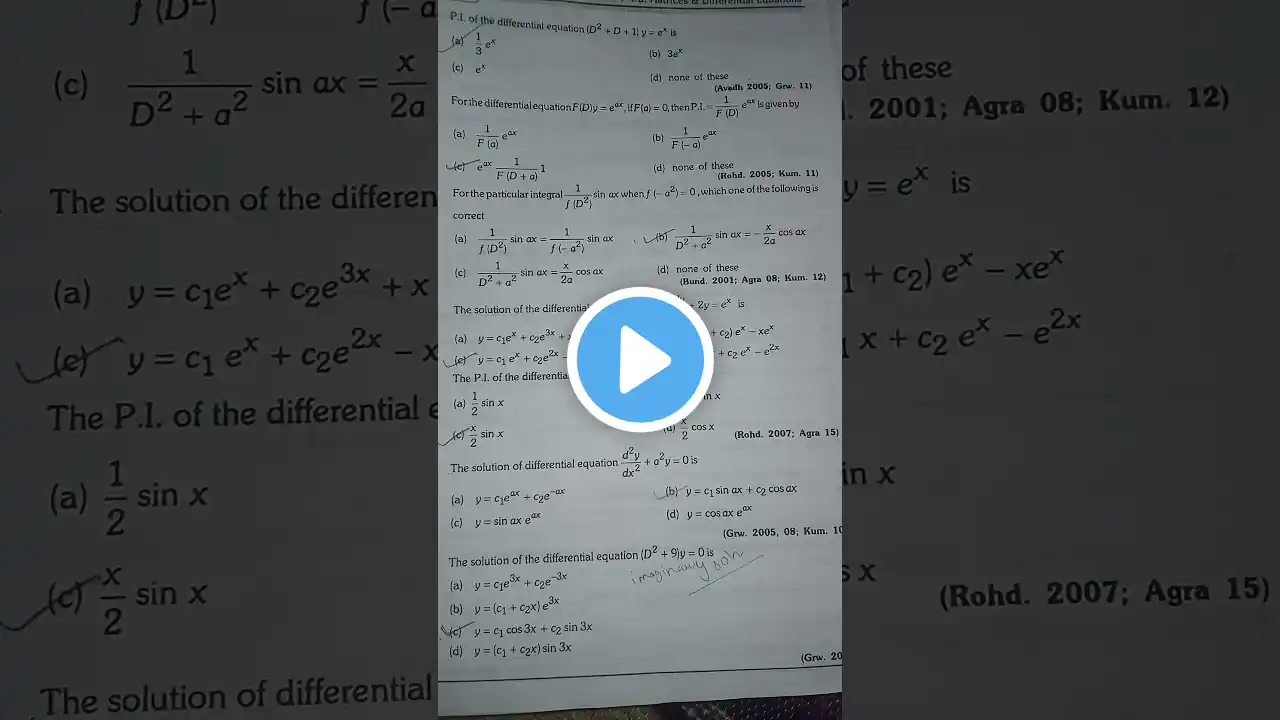 P.I. of the differential equation (D² + D + 1) y = eˣ is
(a) 1/3 eˣ
(b) 3eˣ
(c) eˣ
(d) none of these
(Avadh 2005; Grw. 11)
For the differential equation F(D)y = eᵃˣ, if F(a) = 0, then P.I. = 1/F(D) eᵃˣ is given by
(a) 1/F(a) eᵃˣ
(b) 1/F(−a) eᵃˣ
(c) eᵃˣ 1/F(D + a) 1
(d) none of these
(Rohd. 2005; Kum. 11)
For the particular integral 1/f(D²) sin ax when f(−a²) = 0, which one of the following is
correct
(a) 1/f(D²) sin ax = 1/f(−a²) sin ax
(b) 1/(D² + a²) sin ax = −x/2a cos ax
(c) 1/(D² + a²) sin ax = x/2a cos ax
(d) none of these
(Bund. 2001; Agra 08; Kum. 12)
The solution of the differential + 2y = eˣ is
(a) y = c₁eˣ + c₂e³ˣ + x
+ c₂) eˣ − xeˣ
(c) y = c₁ eˣ + c₂e²ˣ −
+ c₂ eˣ − e²ˣ
The P.I. of the differential
(a) 1/2 sin x
in x
(c) x/2 sin x
(d) x/2 cos x
(Rohd. 2007; Agra 15)
The solution of differential equation d²y/dx² + a²y = 0 is
(a) y = c₁eᵃˣ + c₂e⁻ᵃˣ
(b) y = c₁ sin ax + c₂ cos ax
(c) y = sin ax eᵃˣ
(d) y = cos ax eᵃˣ
(Grw. 2005, 08; Kum. 10
The solution of the differential equation (D² + 9)y = 0 is
imaginary soln
(a) y = c₁e³ˣ + c₂e⁻³ˣ
(b) y = (c₁ + c₂x) e³ˣ
(c) y = c₁ cos 3x + c₂ sin 3x
(d) y = (c₁ + c₂x) sin 3x
(Grw. 20